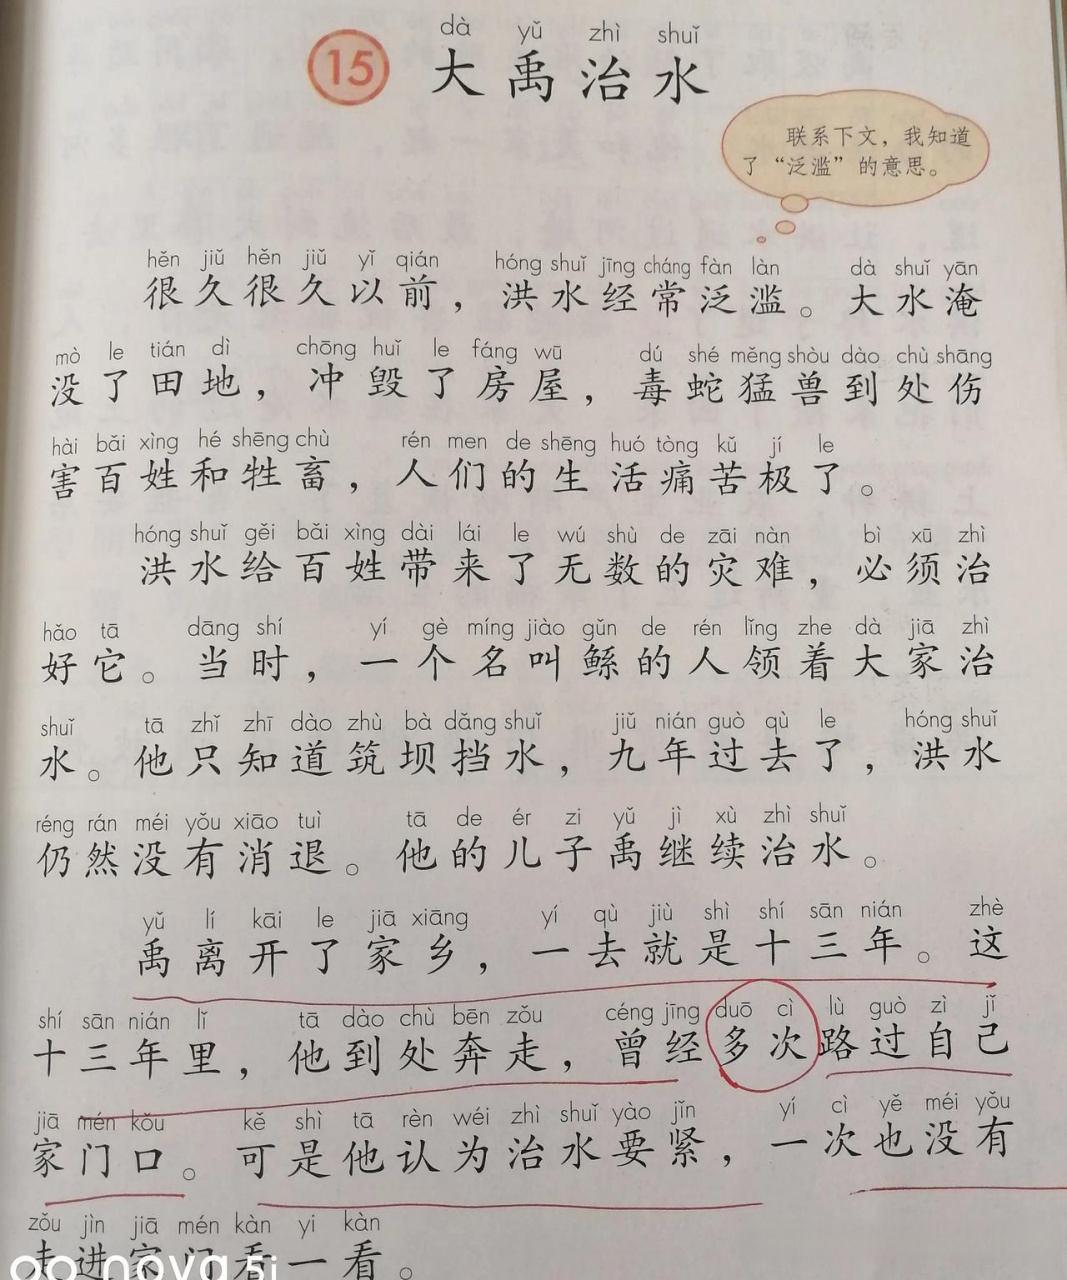 dà yǔ zhì shuǐ
15 大禹治水
联系下文，我知道
了“泛滥”的意思。
hěn jiǔ hěn jiǔ yǐ qián hóng shuǐ jīng cháng fàn làn dà shuǐ yān
很久很久以前，洪水经常泛滥。大水淹
mò le tián dì chōng huǐ le fáng wū dú shé měng shòu dào chù shāng
没了田地，冲毁了房屋，毒蛇猛兽到处伤
hài bǎi xìng hé shēng chù rén men de shēng huó tòng kǔ jí le
害百姓和牲畜，人们的生活痛苦极了。
hóng shuǐ gěi bǎi xìng dài lái le wú shù de zāi nàn bì xū zhì
洪水给百姓带来了无数的灾难，必须治
hǎo tā dāng shí yí gè míng jiào gǔn de rén lǐng zhe dà jiā zhì
好它。当时，一个名叫鲧的人领着大家治
shuǐ tā zhǐ zhī dào zhù bà dǎng shuǐ jiǔ nián guò qù le hóng shuǐ
水。他只知道筑坝挡水，九年过去了，洪水
réng rán méi yǒu xiāo tuì tā de ér zi yǔ jì xù zhì shuǐ
仍然没有消退。他的儿子禹继续治水。
yǔ lí kāi le jiā xiāng yí qù jiù shì shí sān nián zhè
禹离开了家乡，一去就是十三年。这
shí sān nián lǐ tā dào chù bēn zǒu céng jīng duō cì lù guò zì jǐ
十三年里，他到处奔走，曾经多次路过自己
jiā mén kǒu kě shì tā rèn wéi zhì shuǐ yào jǐn yí cì yě méi yǒu
家门口。可是他认为治水要紧，一次也没有
zǒu jìn jiā mén kàn yi kàn
走进家门看一看。
nova 5i